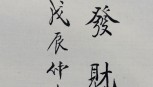 發財
戊辰仲